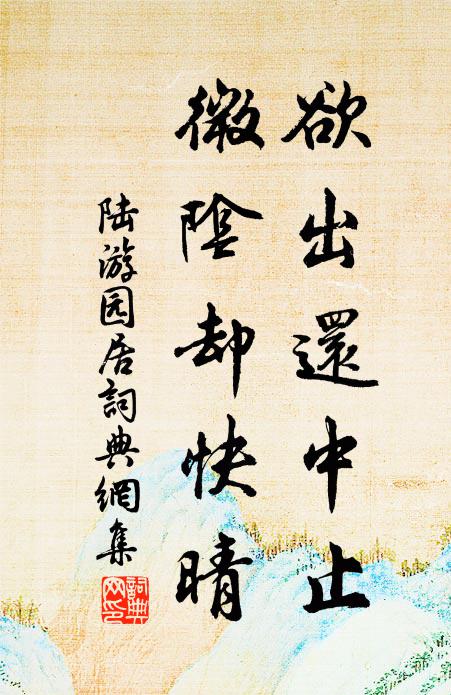 欲出還中止
微陰却快晴
陆游园居詞典網集
詞典网印